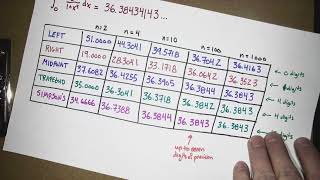 ∫0 1/(1+x²) dx = 36.38434143...
n=2 n=4 n=10 n=100 n=1000
LEFT 51.0000 44.3041 39.5718 36.7042 36.4163 0 digits
RIGHT 19.0000 28.3041 33.1718 36.0642 36.3523 digits
MIDPOINT 37.6082 36.4255 36.3905 36.3844 36.3843 4 digits
TRAPEZOID 35.0000 36.3041 36.3718 36.3842 36.3843 4 digits
SIMPSON'S 34.6666 36.7388 36.3844 36.3843 36.3843 digits
up to seven
digits of precision